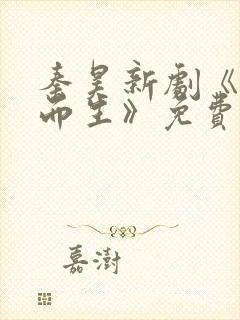 秦昊新剧《
而生》免费
嘉澍